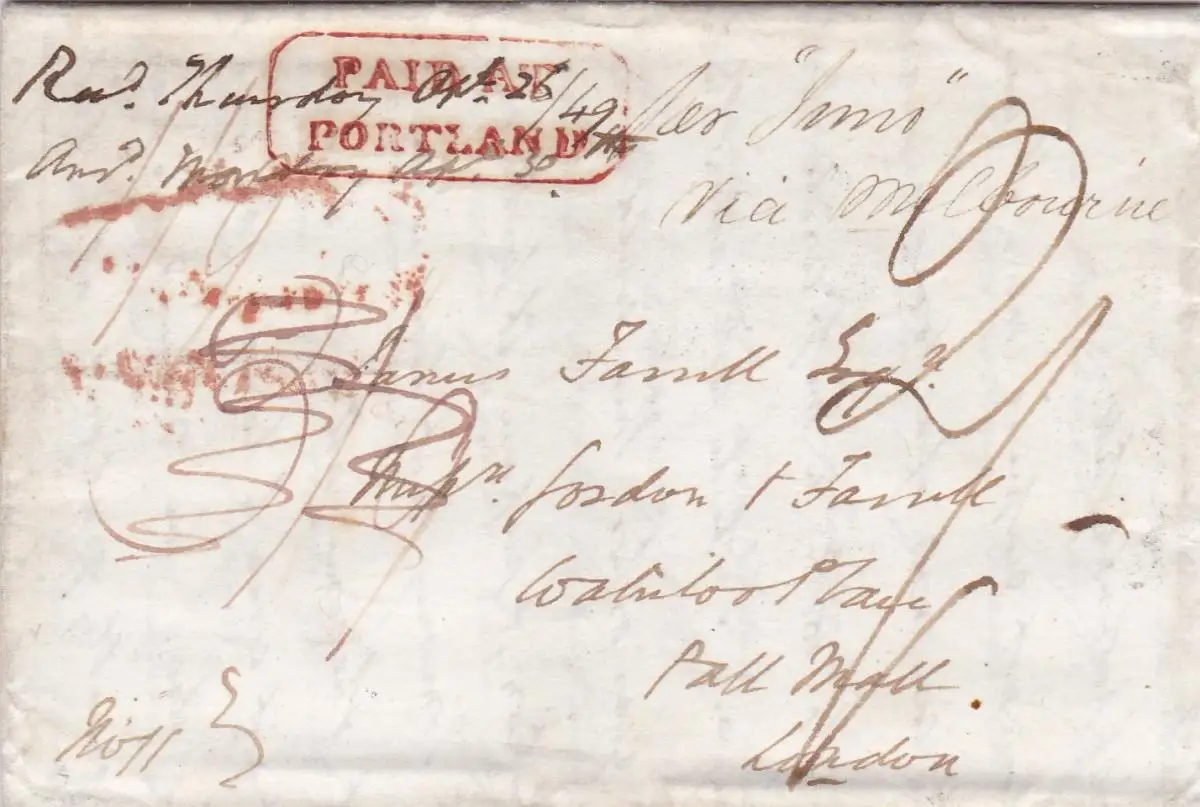 Recd. Thursday Apl. 26/49
PAID AT
PORTLAND
Ansd. Monday Apl. 30
Per "Juno"
Via Melbourne
James Farrell Esqr.
Messrs. Gordon & Farrell
Waterloo Place
Pall Mall
London